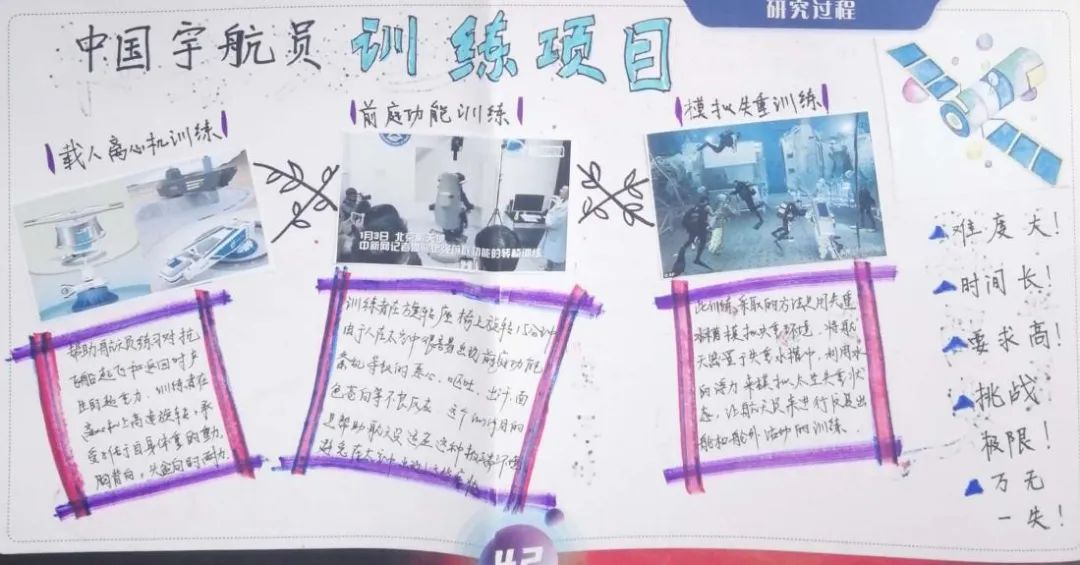 研究过程
中国宇航员 训练项目
载人离心机训练
前庭功能训练
模拟失重训练
1月3日 北京航天城
中新网记者
功能的转椅训练
帮助航天员练习对抗
飞船起飞和返回时产
生的超重力，训练者在
离心机上高速旋转，承
受8倍于自身体重的重力，
胸背向，头盆向的耐力
训练者在旋转座椅上旋转15分钟
由于人在太空中很容易出现前庭功能
紊乱导致的恶心、呕吐、出汗、面
色苍白等不良反应 这个训练目的
是帮助航天员适应这种
避免在太空
此训练采取的方法是用失重
水槽模拟失重环境，将航
天员置于失重水槽中，利用水
的浮力来模拟太空失重状
态，让航天员来进行反复出
舱和舱外活动的训练。
难度大！
时间长！
要求高！
挑战
极限！
万无
一失！
42